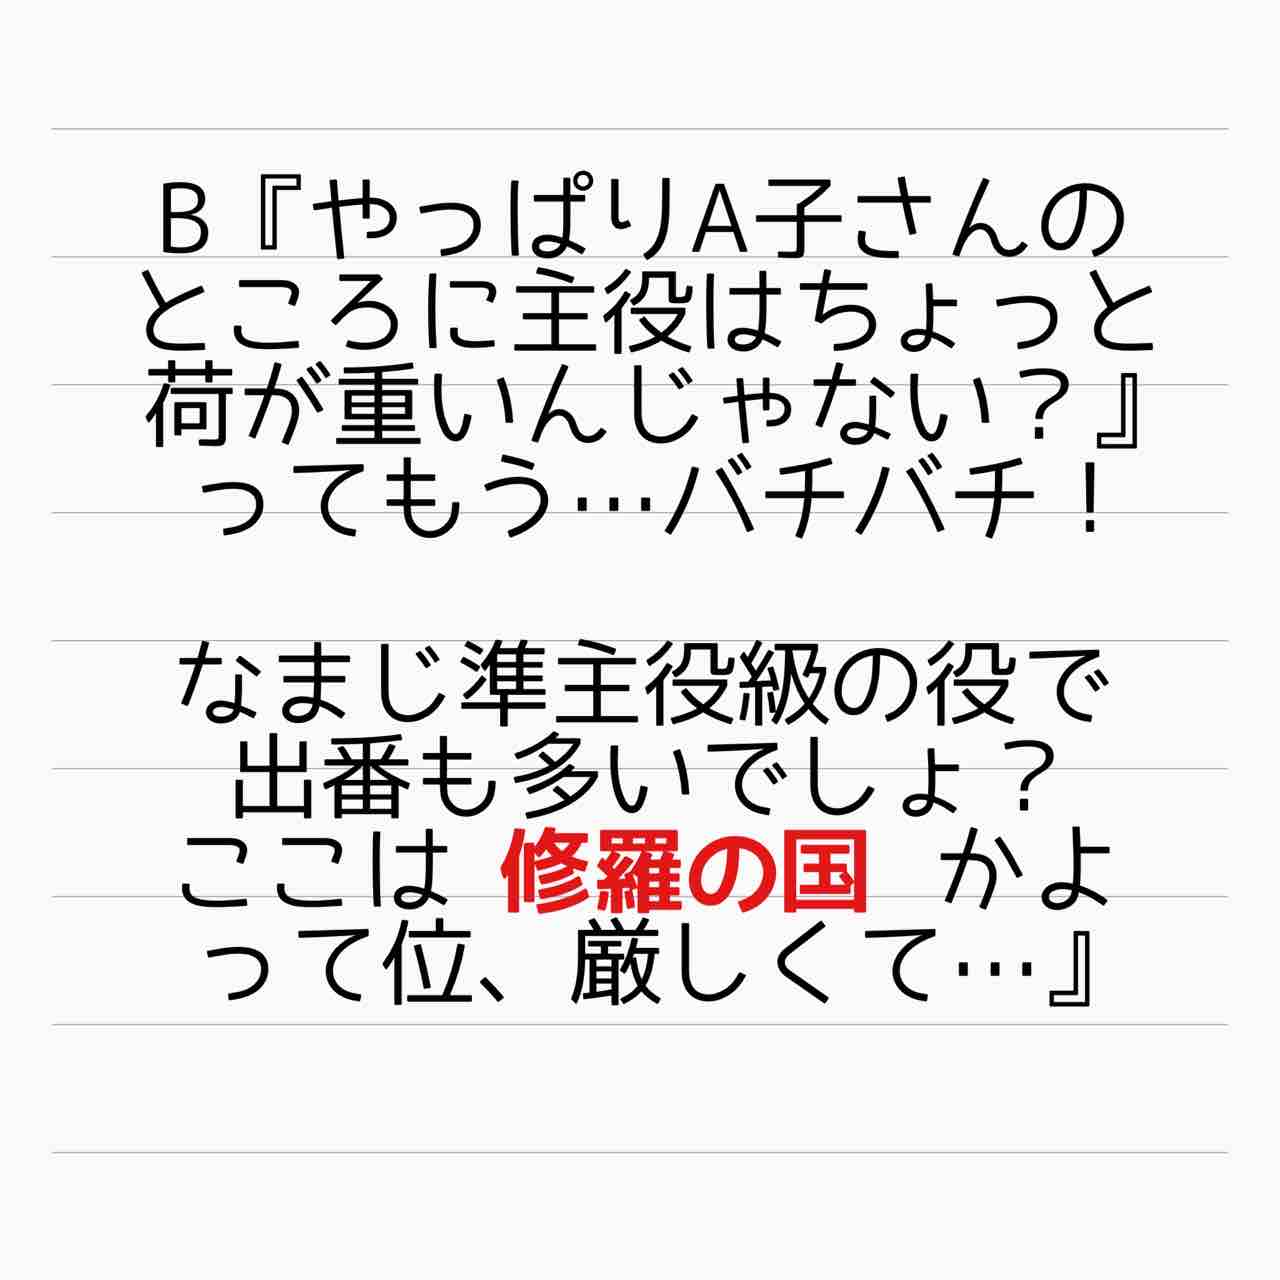 B『やっぱりA子さんの
ところに主役はちょっと
荷が重いんじゃない？』
ってもう…バチバチ！
なまじ準主役級の役で
出番も多いでしょ？
ここは 修羅の国 かよ
って位、厳しくて…』